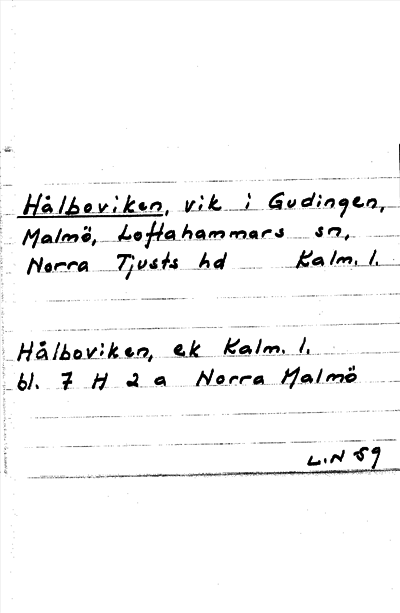 Hålboviken, vik i Gudingen,
Malmö, Loftahammars sn,
Norra Tjusts hd Kalm. l.
Hålboviken, ek Kalm. l.
bl. 7 H 2 a Norra Malmö
L.N 59